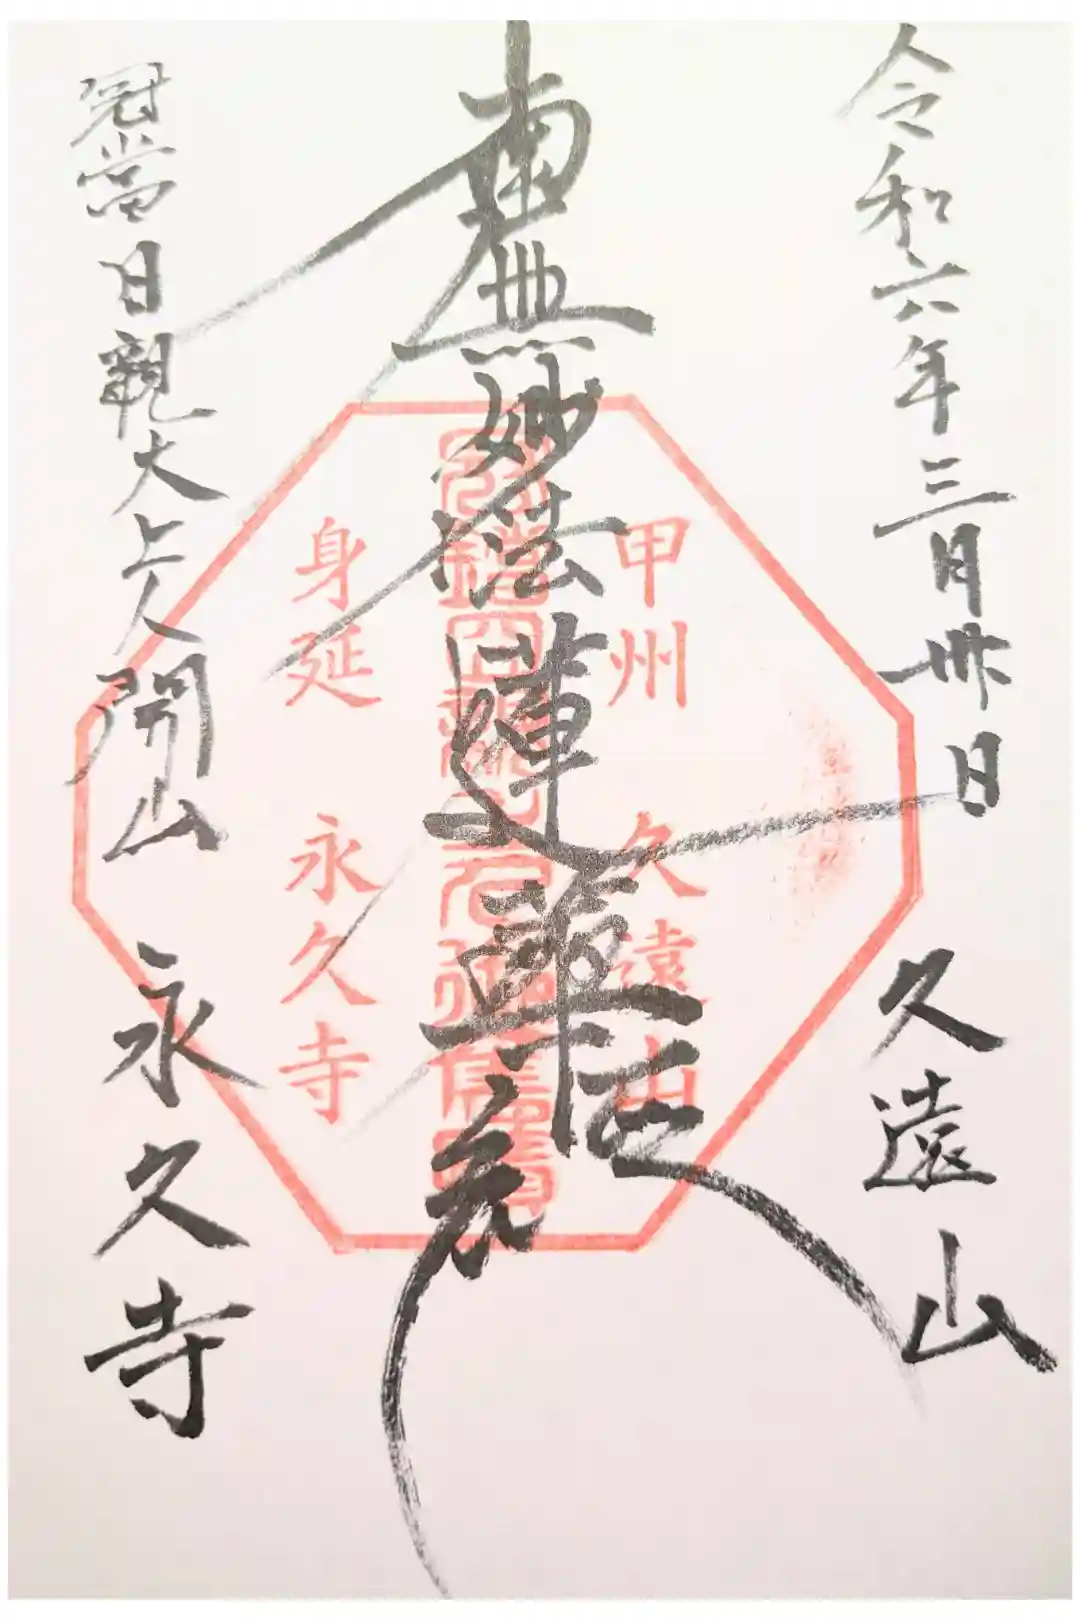 令和六年三月卅日
久遠山
南無妙法蓮華経
冠鐺日親大上人開山
永久寺
甲州
久遠山
身延
永久寺